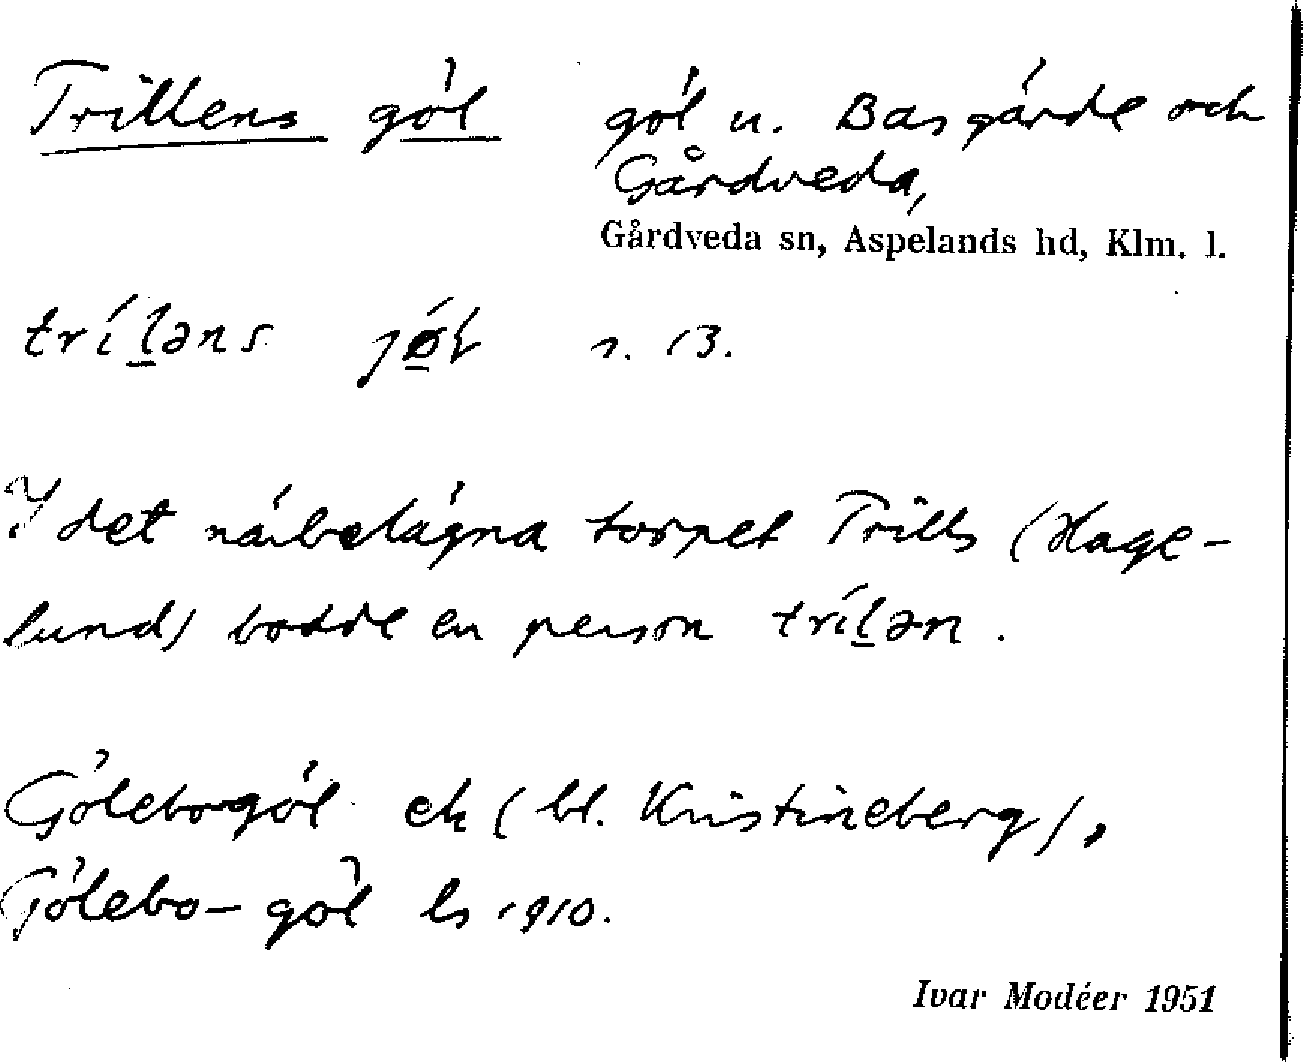 Trillens göl göl u. Basgärde och
Gårdveda,
Gårdveda sn, Aspelands hd, Klm. l.
tríləns jøl s. 13.
I det närbelägna torpet Trills (Hage-
lund) bodde en person trílən.
Gölebogöl ek (bl. Kristineberg),
Gölebo-göl ls 1910.
Ivar Modéer 1951